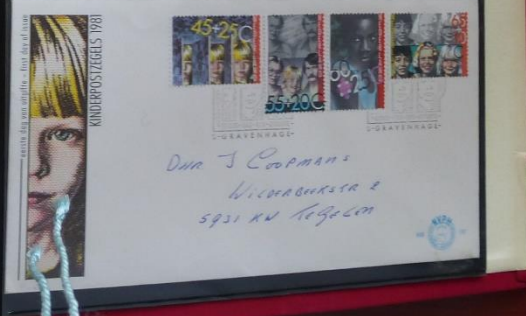 KINDERPOSTZEGELS 1981
eerste dag van uitgifte - first day of issue
45+25C
55+20C
60
65
'S-GRAVENHAGE
'S-GRAVENHAGE
DHR J COOPMANS
WILDERBEEKSTR 2
5931 KW TEGELEN